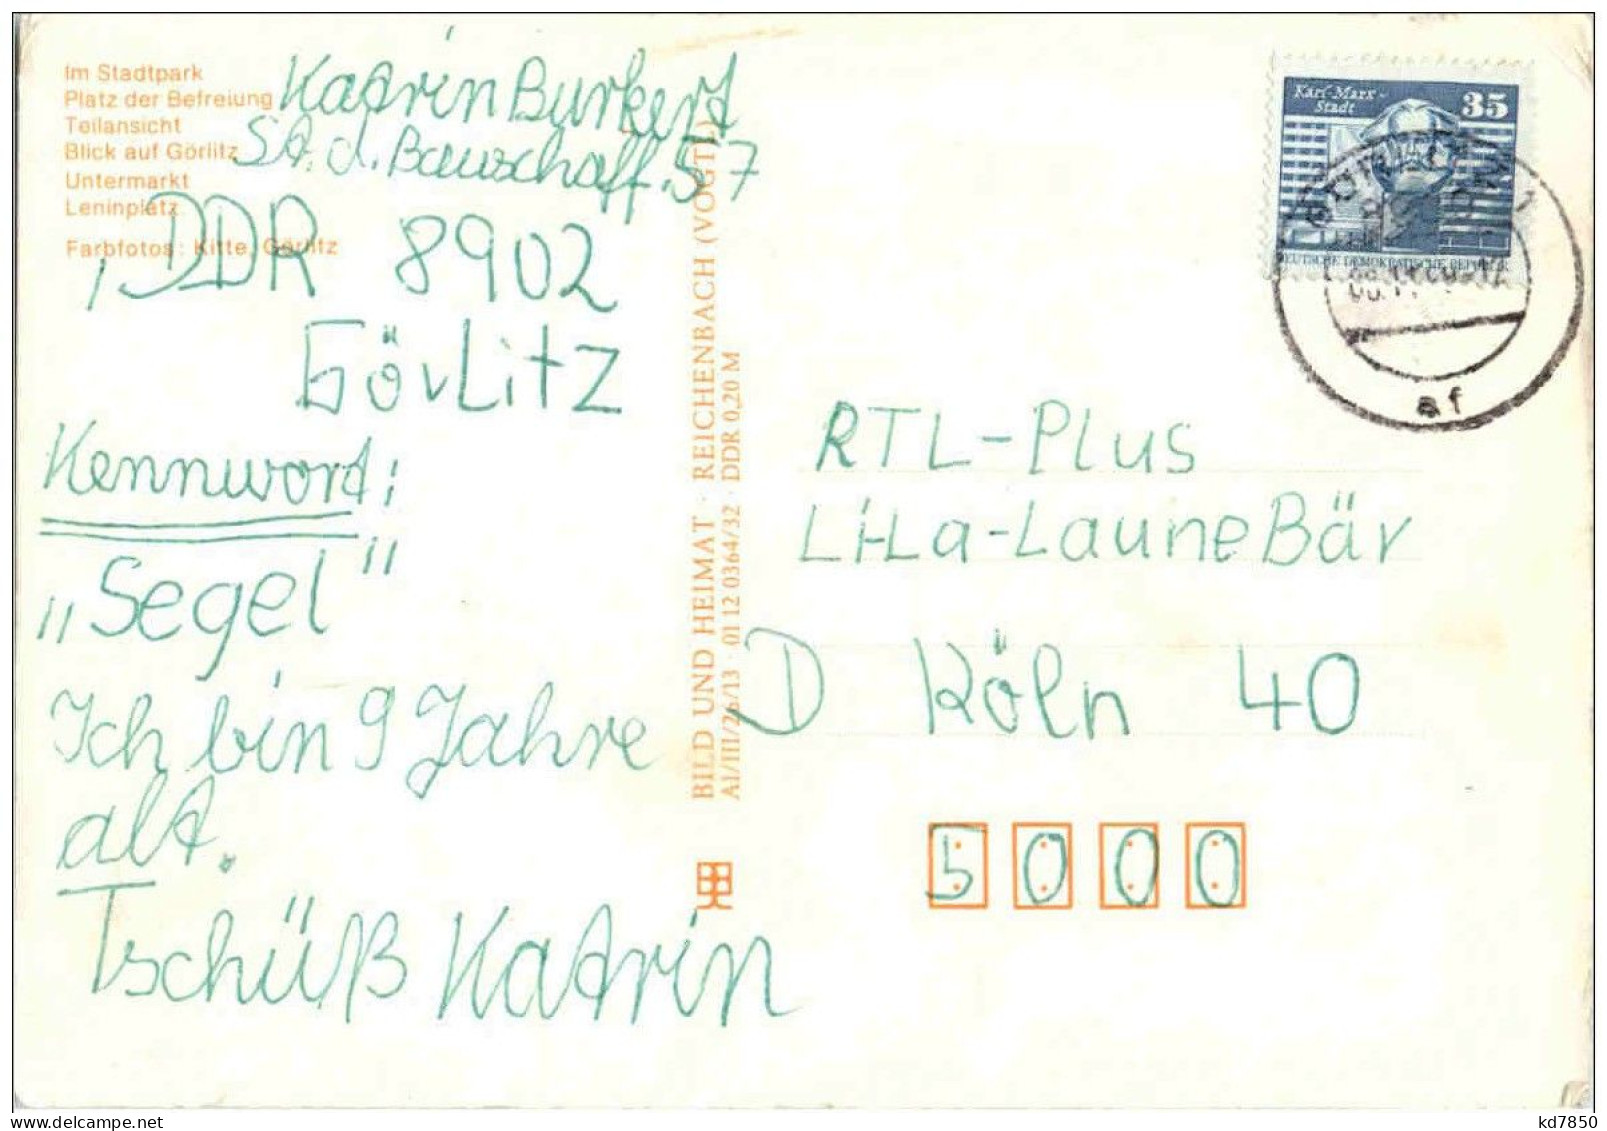 Im Stadtpark
Platz der Befreiung
Teilansicht
Blick auf Görlitz
Untermarkt
Leninplatz
Farbfotos: Kitte, Görlitz
Katrin Burkert
St. d. Bauschaff. 57
DDR 8902
Görlitz
Kennwort:
„Segel"
Ich bin 9 Jahre
alt.
Tschüß Katrin
BILD UND HEIMAT · REICHENBACH (VOGTL)
A1/III/26/13 · 01 12 0364/32 · DDR 0,20 M
Karl-Marx-
Stadt
35
DEUTSCHE DEMOKRATISCHE REPUBLIK
af
RTL-Plus
LiLa-Laune Bär
D Köln 40
5000
kd7850